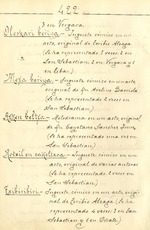 422
3 en Vergara.
Olentzari beriya.- Juguete cómico en un
acto, original de Toribio Alzaga
(Se ha representado 2 veces en
San Sebastian, 2 en Vergara y 1
en Eibar.)
Moza beriya.- Juguete cómico en un acto
original de Dn. Avelino Barriola
(Se ha representado 2 veces en
San Sebastian.)
Melodrama en un acto, original
de Dn. Cayetano Sanchez Irure
(Se ha representado una vez en
San Sebastian.)
Juguete cómico en un
acto, original de varios autores
(Se ha representado 2 veces en
San Sebastian.)
Juguete cómico en un acto, original
de Toribio Alzaga. (Se ha
representado 4 veces en San
Sebastian y 1 en Oñate.)